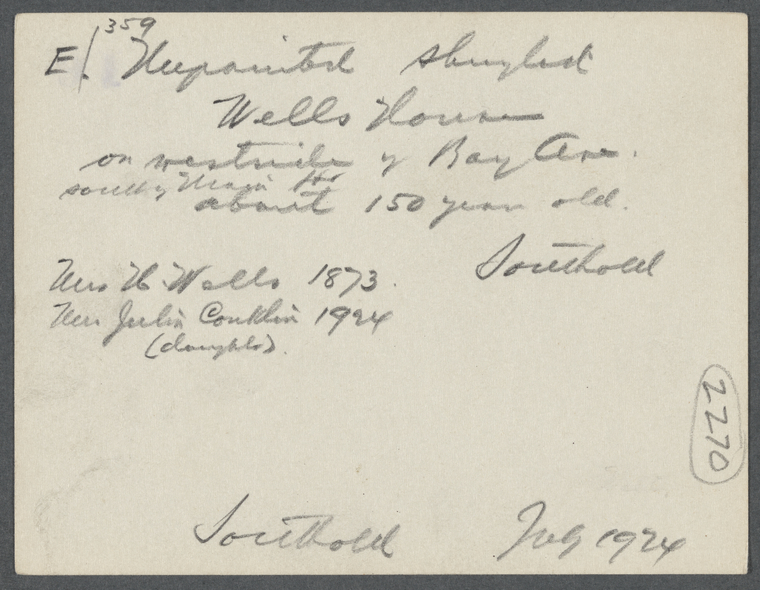 359
E. Unpainted shingled
Wells House
on westside of Bay Ave.
south of Main St.
about 150 years old.
Southold
Mrs H. Wells 1873.
Mrs Julia Conklin 1924
(daughter).
2270
Southold July 1924